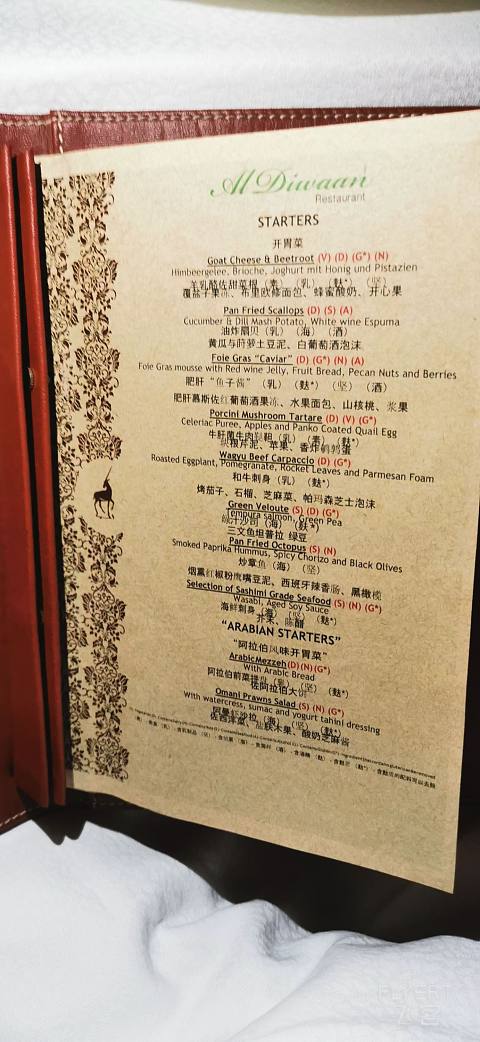 Al Diwaan
Restaurant
STARTERS
开胃菜
Goat Cheese & Beetroot (V) (D) (G*) (N)
Himbeergelee, Brioche, Joghurt mit Honig und Pistazien
羊乳酪佐甜菜根（素）（乳）（麸*）（坚）
覆盆子果冻、布里欧修面包、蜂蜜酸奶、开心果
Pan Fried Scallops (D) (S) (A)
Cucumber & Dill Mash Potato, White wine Espuma
油炸扇贝（乳）（海）（酒）
黄瓜与莳萝土豆泥、白葡萄酒泡沫
Foie Gras "Caviar" (D) (G*) (N) (A)
Foie Gras mousse with Red wine Jelly, Fruit Bread, Pecan Nuts and Berries
肥肝 "鱼子酱" （乳）（麸*）（坚）（酒）
肥肝慕斯佐红葡萄酒果冻、水果面包、山核桃、浆果
Porcini Mushroom Tartare (D) (V) (G*)
Celeriac Puree, Apples and Panko Coated Quail Egg
牛肝菌牛肉鞑靼（乳）（素）（麸*）
块根芹泥、苹果、香炸鹌鹑蛋
Wagyu Beef Carpaccio (D) (G*)
Roasted Eggplant, Pomegranate, Rocket Leaves and Parmesan Foam
和牛刺身（乳）（麸*）
烤茄子、石榴、芝麻菜、帕玛森芝士泡沫
Green Veloute (S) (D) (G*)
Tempura salmon, Green Pea
（海）（麸*）
三文鱼坦普拉 绿豆
Pan Fried Octopus (S) (N)
Smoked Paprika Hummus, Spicy Chorizo and Black Olives
炒章鱼（海）（坚）
烟熏红椒粉鹰嘴豆泥、西班牙辣香肠、黑橄榄
Selection of Sashimi Grade Seafood (S) (N) (G*)
Wasabi, Aged Soy Sauce
海鲜刺身（海）（坚）（麸*）
芥末、陈醋
"ARABIAN STARTERS"
"阿拉伯风味开胃菜"
Arabic Mezzeh (D) (N) (G*)
With Arabic Bread
阿拉伯前菜拼（乳）（坚）（麸*）
佐阿拉伯大饼
Omani Prawns Salad (S) (N) (G*)
With watercress, sumac and yogurt tahini dressing
阿曼虾沙拉（海）（坚）（麸*）
佐西洋菜、盐肤木果、酸奶芝麻酱